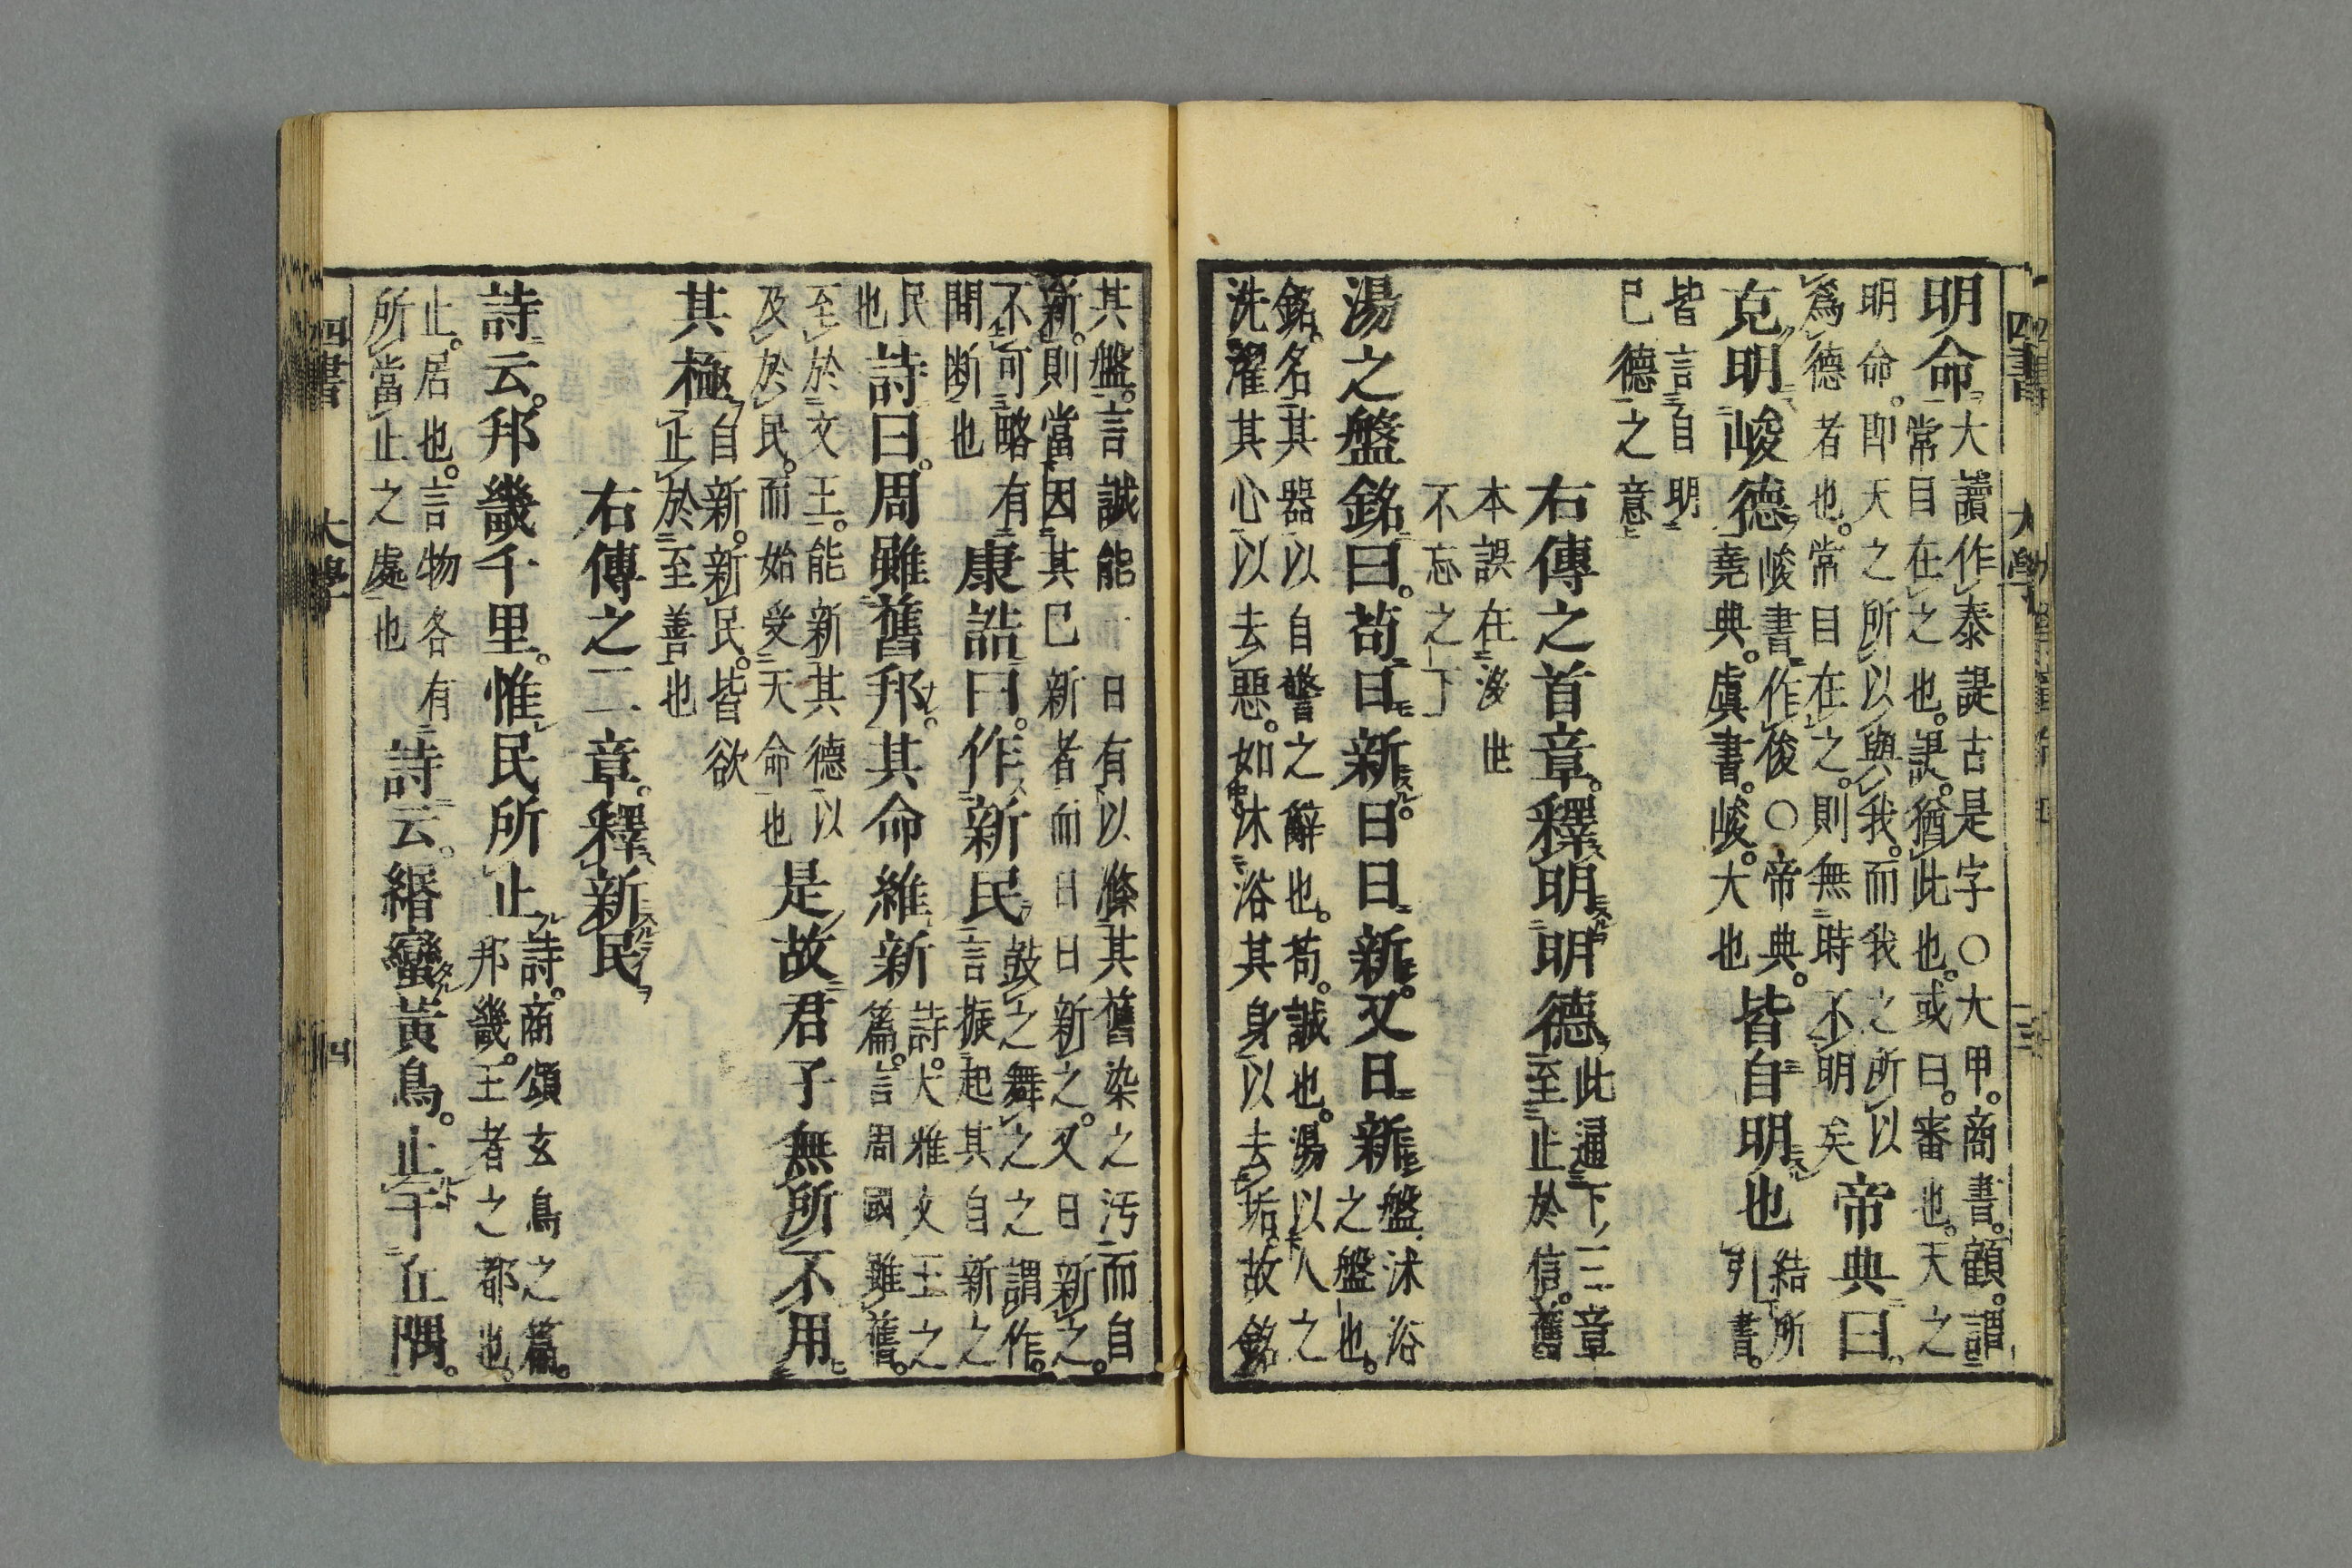 四書 大學 三
明命
大讀作泰諟古是字○大甲。商書。顧。謂
常目在之也。諟。猶此也。或曰。審也。天之
明命。即天之所以與我。而我之所以
爲德者也。常目在之。則無時不明矣
帝典曰
克明峻德
峻書作俊○帝典。
堯典。虞書。峻。大也
皆自明也
結所
引書。
皆言自明
已德之意
右傳之首章。釋明明德
此通下三章
至止於信。舊
本誤在沒世
不忘之下
湯之盤銘曰。苟日新。日日新。又日新
盤。沐浴
之盤也。
銘。名其器以自警之辭也。苟。誠也。湯以人之
洗濯其心以去惡。如沐浴其身以去垢。故銘
其盤。言誠能一日有以滌其舊染之汚而自
新。則當因其已新者而日日新之。又日新之。
不可略有
間断也
康誥曰。作新民
鼓之舞之之謂作。
言振起其自新之
民
也
詩曰。周雖舊邦。其命維新
詩。大雅文王之
篇。言周國雖舊。
至於文王。能新其德以
及於民。而始受天命也
是故君子無所不用
其極
自新。新民。皆欲
止於至善也
右傳之二章。釋新民
詩云。邦畿千里。惟民所止
詩。商頌玄鳥之篇。
邦畿。王者之都也。
止。居也。言物各有
所當止之處也
詩云。緡蠻黃鳥。止于丘隅。
四書 大學 四